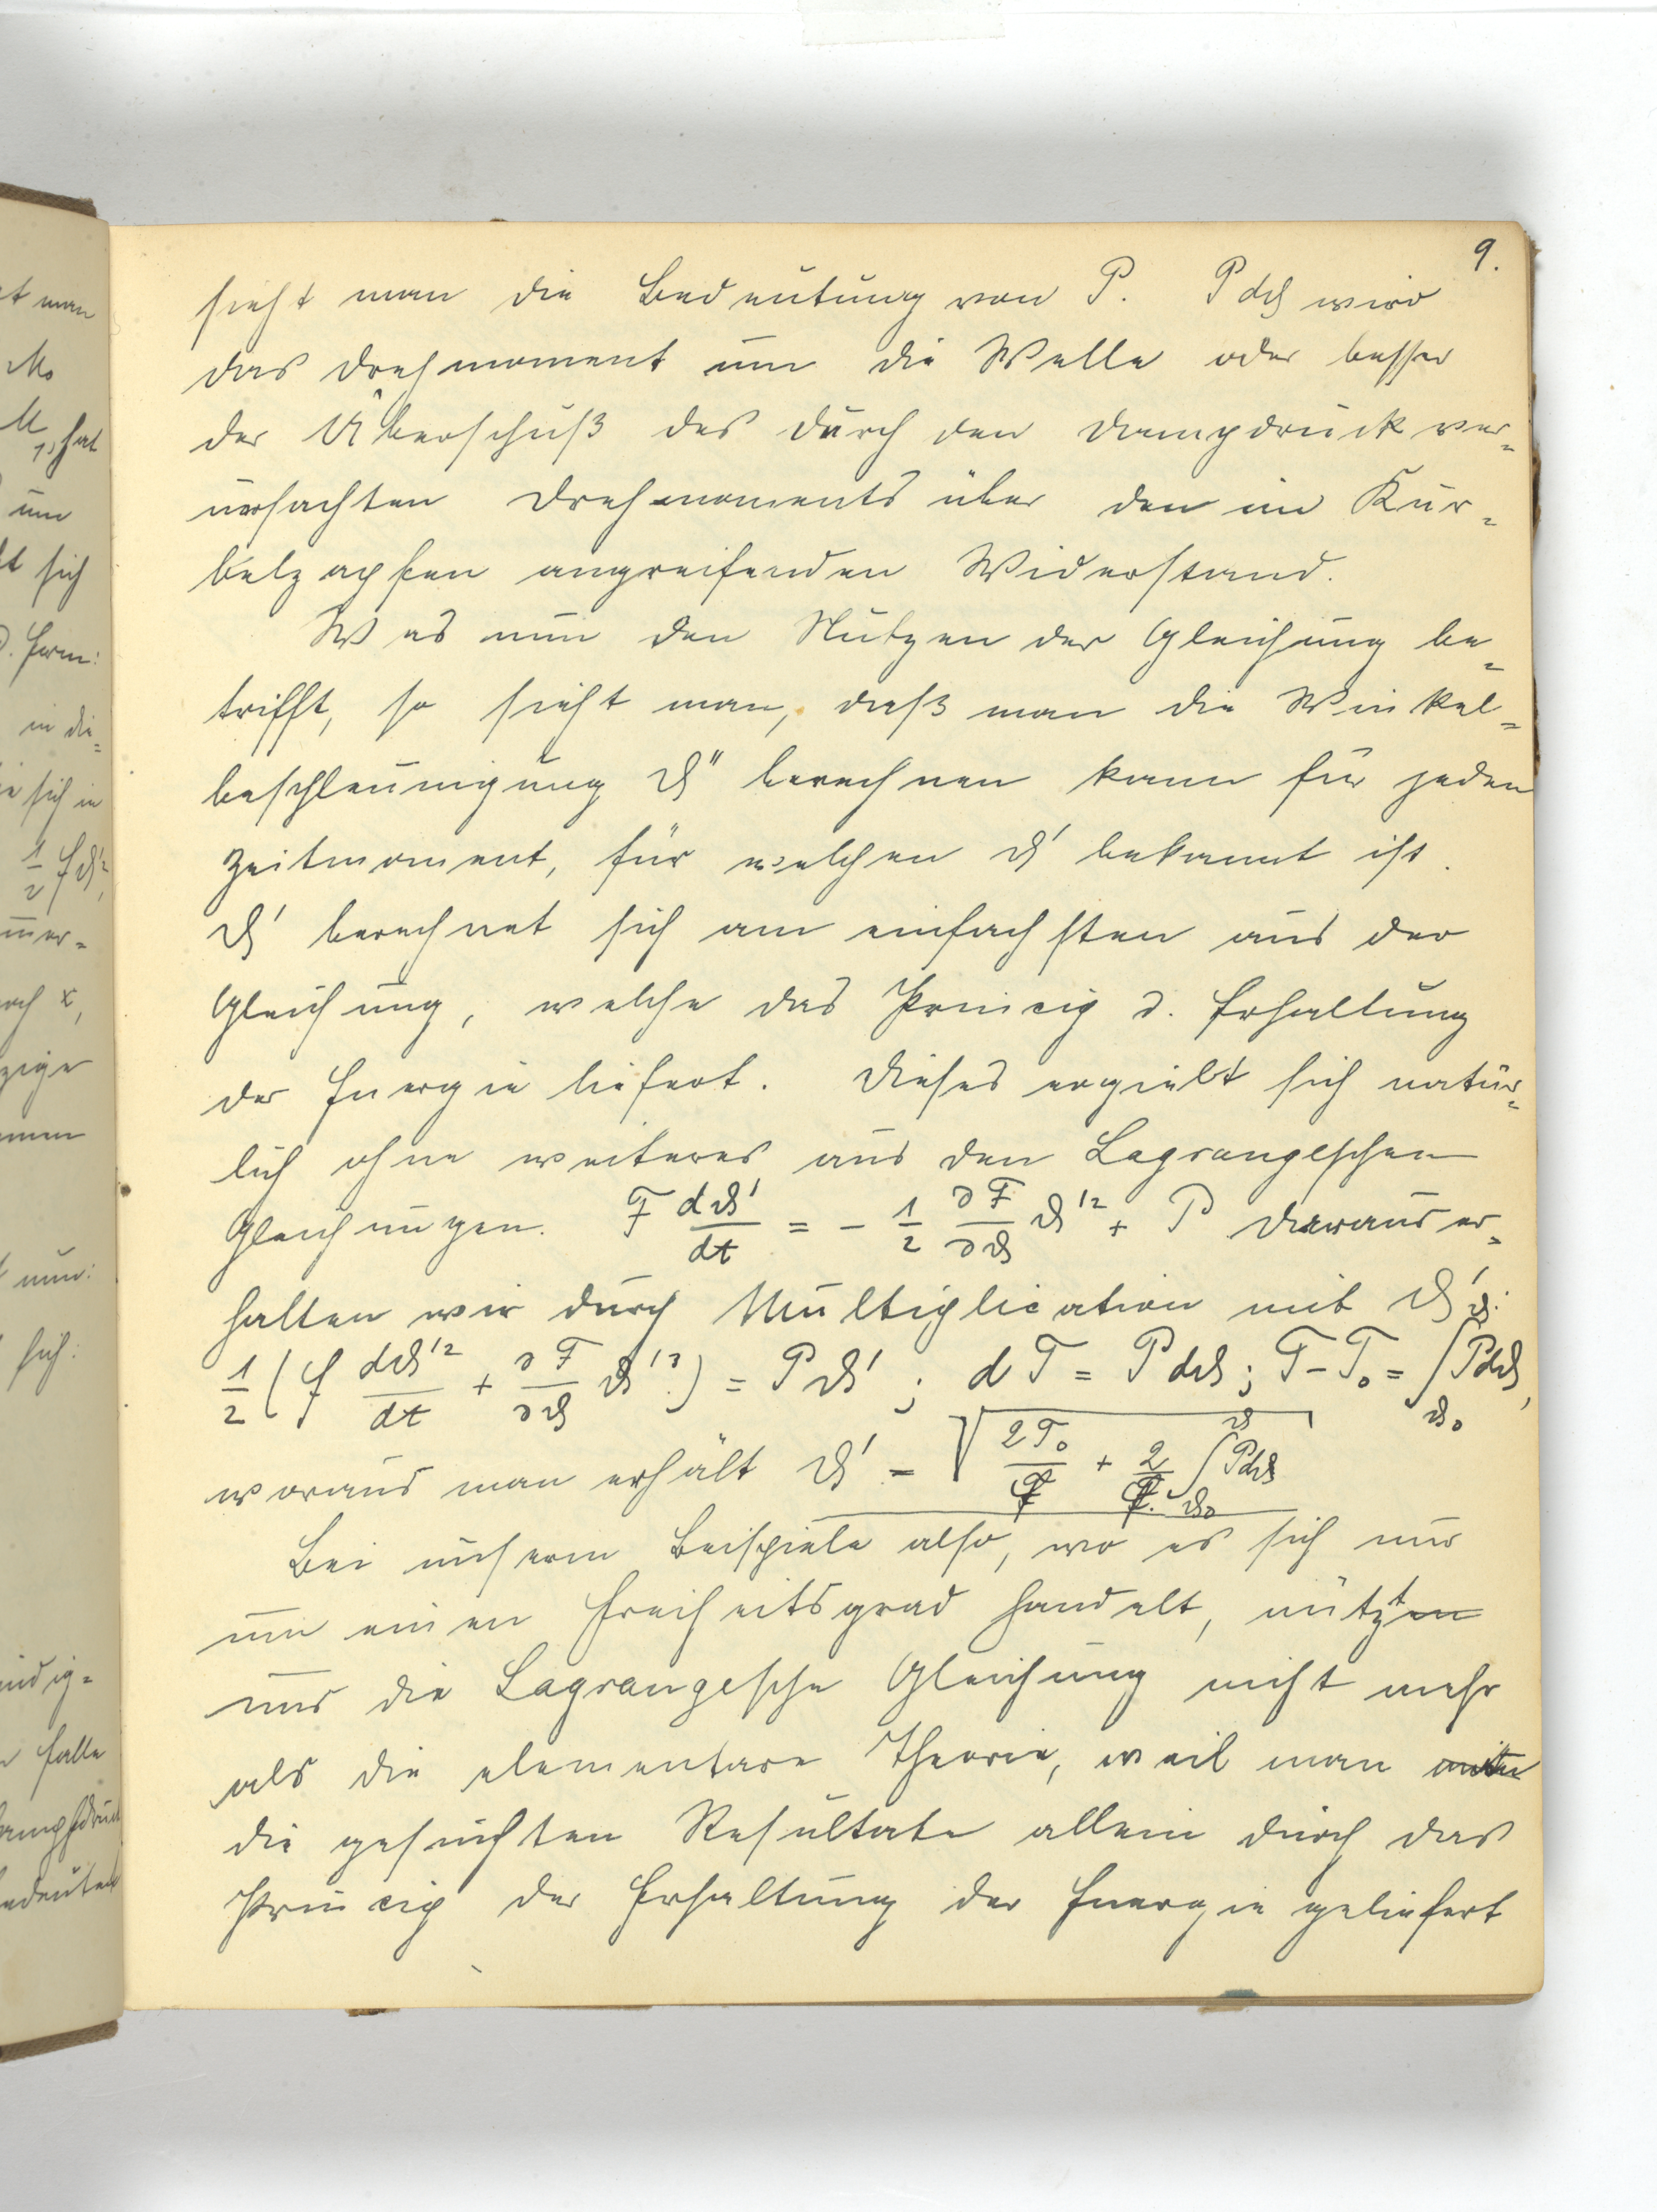 9.
sieht man die Bedeutung von P. P dϑ wird
das Drehmoment um die Welle oder besser
der Überschuß des durch den Dampfdruck ver=
ursachten Drehmoments über den im Kur=
belzapfen angreifenden Widerstand.
Was nun den Nutzen der Gleichung be=
trifft, so sieht man, daß man die Winkel=
beschleunigung ϑ'' berechnen kann für jeden
Zeitmoment, für welchen ϑ' bekannt ist.
ϑ' berechnet sich am einfachsten aus der
Gleichung, welche das Princip d. Erhaltung
der Energie liefert. Dieses ergiebt sich natür=
lich ohne weiteres aus den Lagrangeschen
Gleichungen. F dϑ'/dt = - 1/2 ∂F/∂ϑ ϑ'² + P Daraus er=
halten wir durch Multiplication mit ϑ':
1/2 (F dϑ'²/dt + ∂F/∂ϑ ϑ'³) = Pϑ' ; dT = P dϑ ; T - T₀ = ∫_ϑ₀^ϑ P dϑ,
woraus man erhält ϑ' = √(2T₀/F + 2/F ∫_ϑ₀^ϑ P dϑ)
Bei unserm Beispiele also, wo es sich nur
um einen Freiheitsgrad handelt, nützt
uns die Lagrangesche Gleichung nicht mehr
als die elementare Theorie, weil man
die gesuchten Resultate allein durch das
Princip der Erhaltung der Energie geliefert